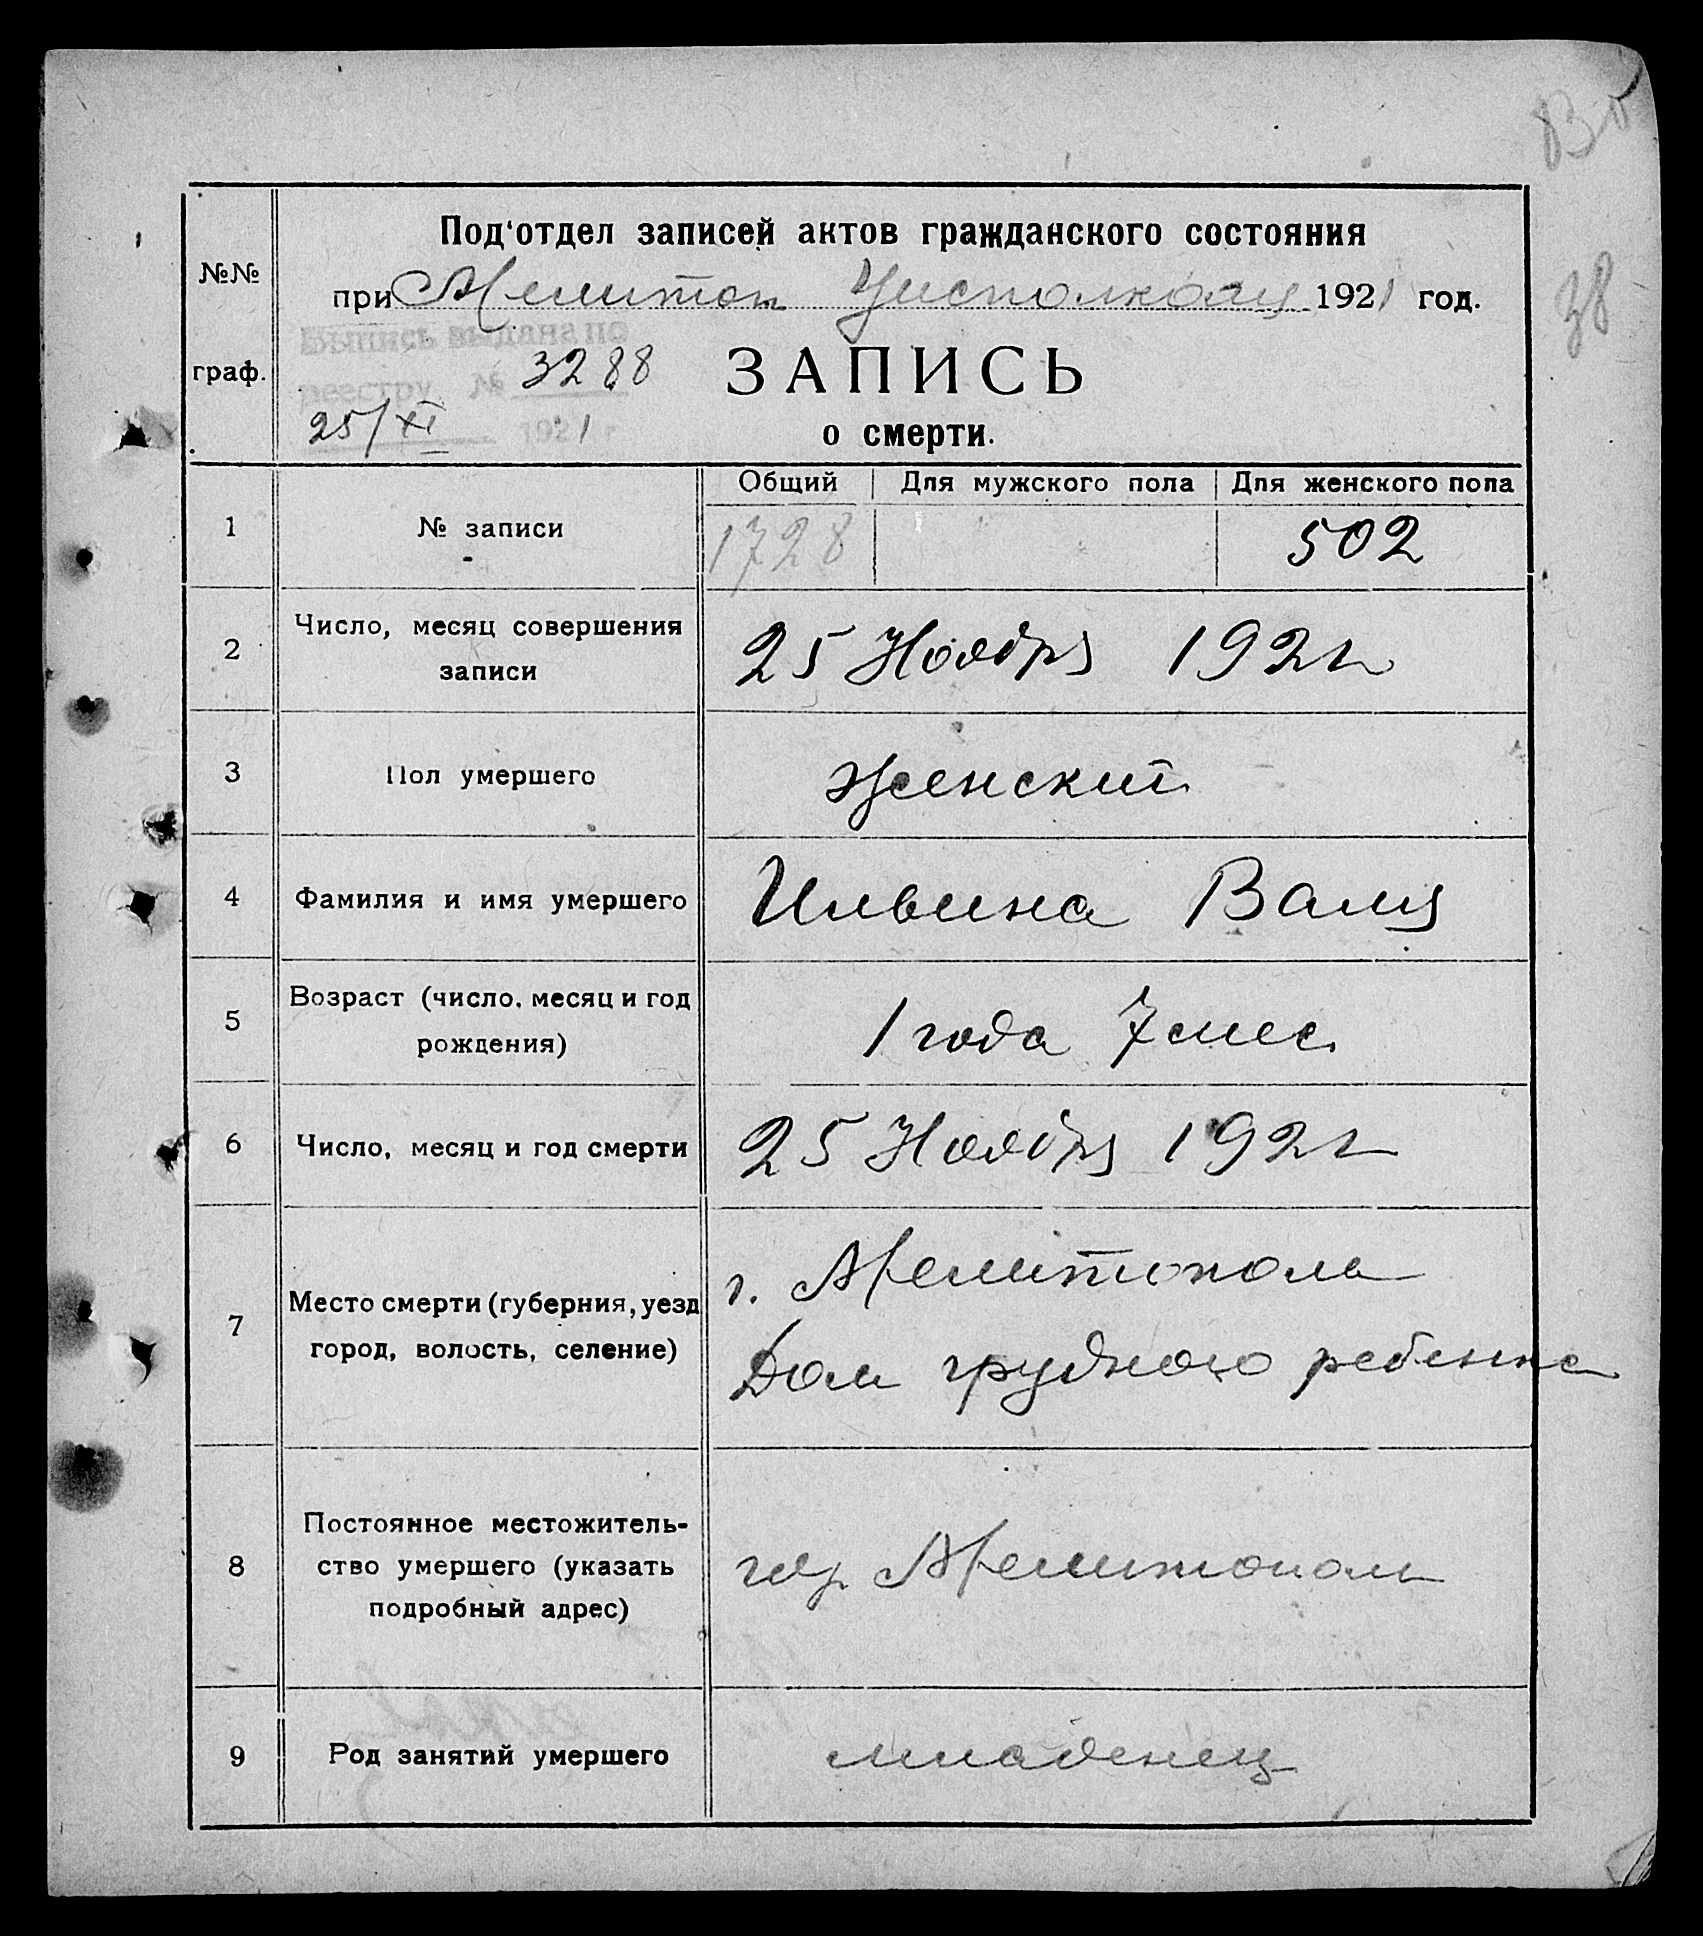 830
38
№№
граф.
Под‘отдел записей актов гражданского состояния
при Мелитоп Уисполкому 1921 год.
Выпись выдана по
реестру № 3288
25/XI 1921 г
ЗАПИСЬ
о смерти.
Общий Для мужского пола Для женского пола
1 № записи 1728 502
2 Число, месяц совершения
записи
25 Ноября 1921
3 Пол умершего женский
4 Фамилия и имя умершего Ильина Валя
5 Возраст (число, месяц и год
рождения)
1 года 7 мес.
6 Число, месяц и год смерти 25 Ноября 1921
7 Место смерти (губерния, уезд
город, волость, селение)
г. Мелитополь
Дом грудного ребенка
8 Постоянное местожитель-
ство умершего (указать
подробный адрес)
гор. Мелитополь
9 Род занятий умершего младенец